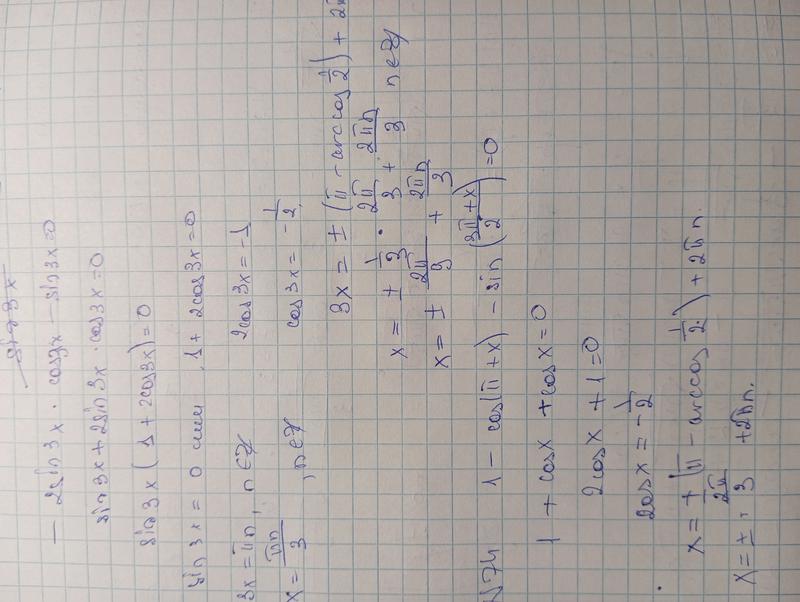 sin3x
- 2sin3x · cos3x - sin3x=0
sin3x+2sin3x·cos3x=0
sin3x(1+2cos3x)=0
sin3x=0 или 1+2cos3x=0
3x=πn, n∈Z 2cos3x=-1
x=πn/3, n∈Z cos3x=-1/2
3x=±(π-arccos1/2)+2π
x=±1/3·2π/3+2πn/3 n∈Z
x=±2π/9+2πn/3
N74 1-cos(π+x)-sin(3π+x/2)=0
1+cosx+cosx=0
2cosx+1=0
2cosx=-1/2
x=±(π-arccos1/2)+2πn.
x=±2π/3+2πn.